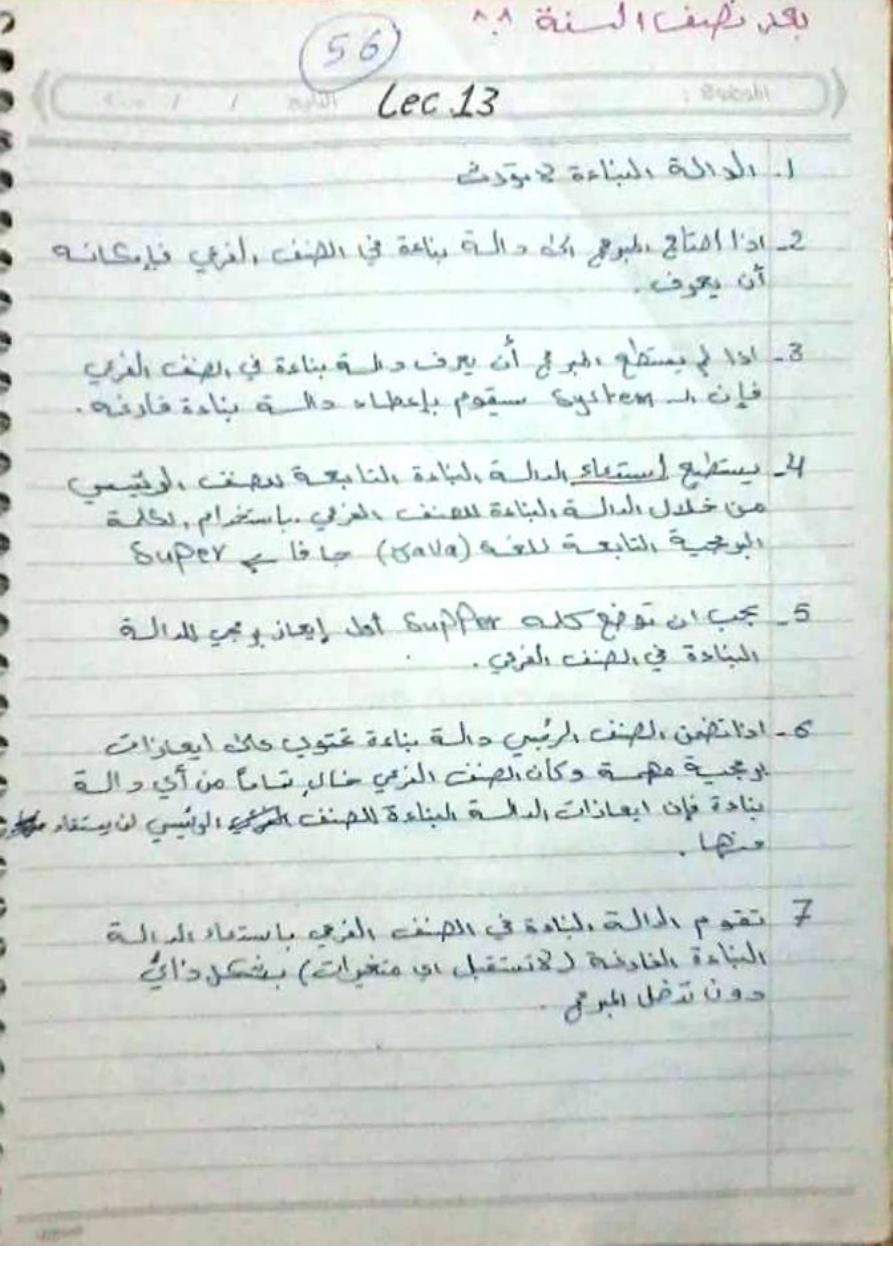 بعد نصف السنة ^.^
56
Lec 13
1. الدالة البناءة لا تورث
2_ اذا احتاج المبرمج الى دالة بناءة في الصنف الفرعي فإمكانه
أن يعرف .
3_ اذا لم يستطع المبرمج أن يعرف دالة بناءة في الصنف الفرعي
فإن الـ System سيقوم بإعطاء دالة بناءة فارغه .
4_ يستطيع إستدعاء الدالة البناءة التابعة للصنف الرئيسي
من خلال الدالة البناءة للصنف الفرعي باستخدام الكلمة
البرمجية التابعة للغة (Java) جافا Super
5_ يجب ان توضع كلمه Supper أول إيعاز برمجي للدالة
البناءة في الصنف الفرعي .
6_ اذا تضمن الصنف الرئيسي دالة بناءة تحتوي على ايعازات
برمجية مهمة وكان الصنف الفرعي خالي تماماً من أي دالة
بناءة فإن ايعازات الدالة البناءة للصنف الرئيسي لن يستفاد
منها .
7 تقوم الدالة البناءة في الصنف الفرعي باستدعاء الدالة
البناءة الفارغة (لا تستقبل اي متغيرات) بشكل ذاتي
دون تدخل المبرمج .